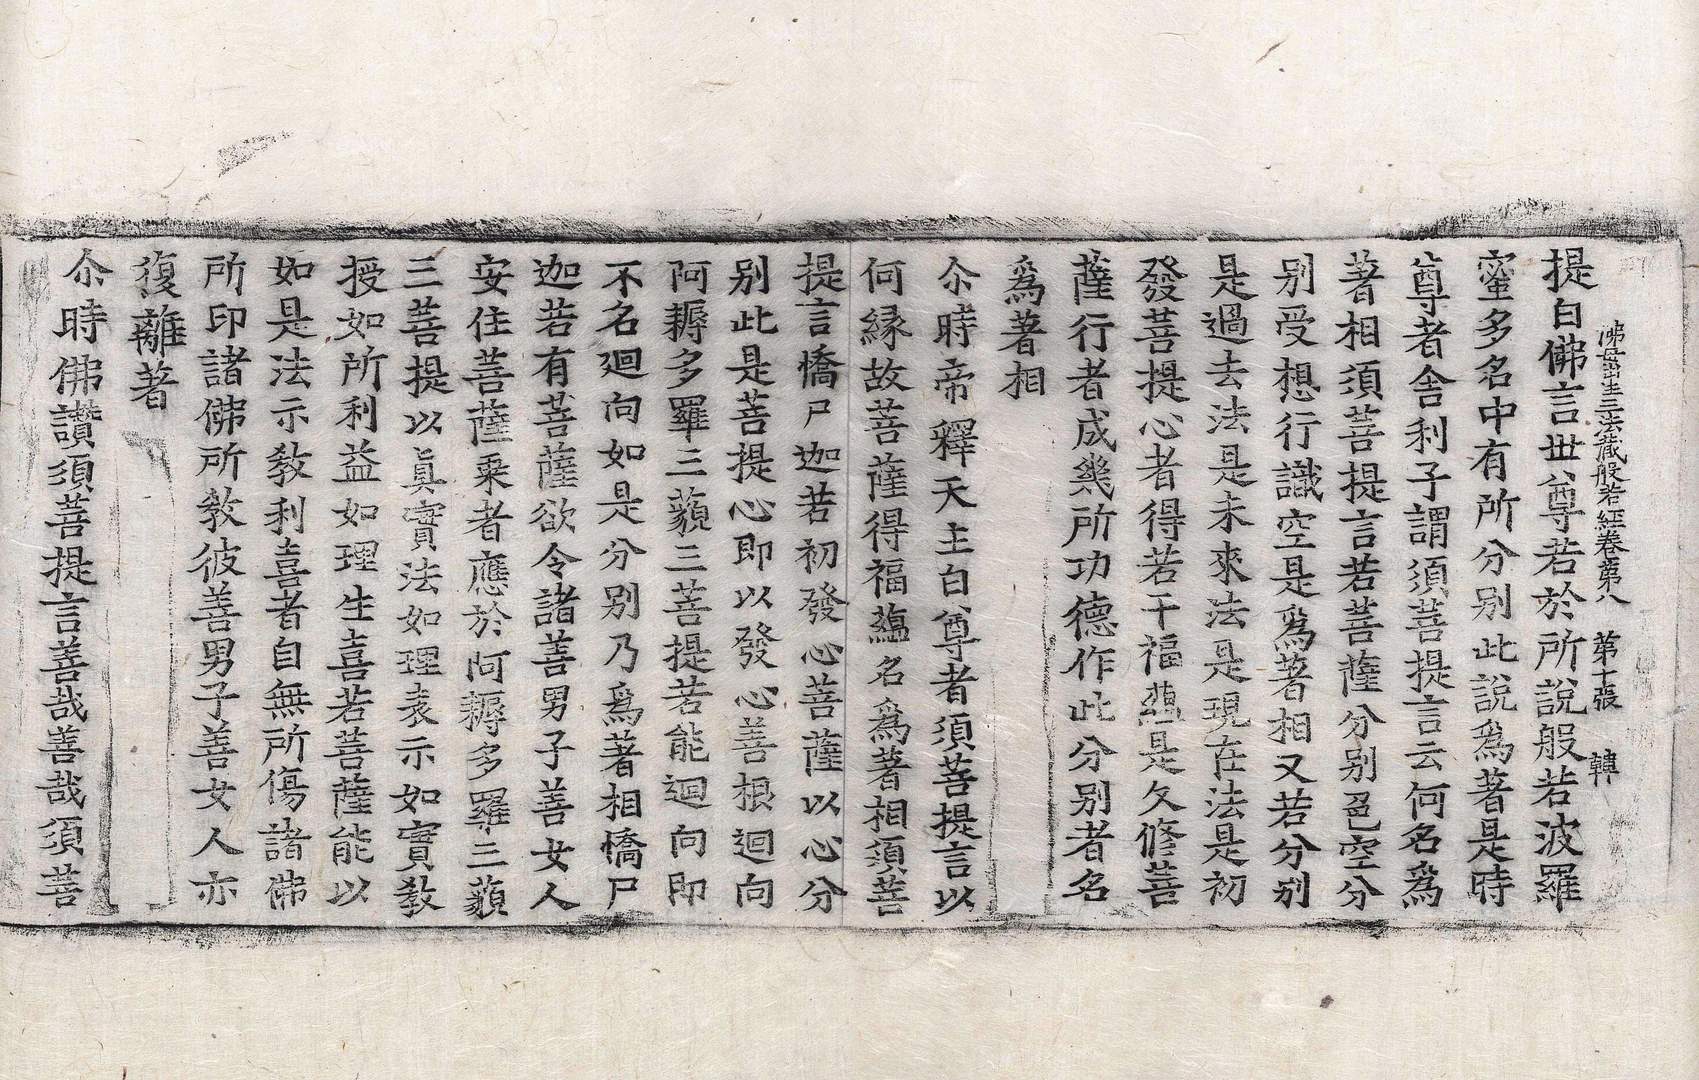 佛母出生三法藏般若經卷第八　第十張　轉
提白佛言世尊若於所說般若波羅
蜜多名中有所分別此說爲著是時
尊者舍利子謂須菩提言云何名爲
著相須菩提言若菩薩分別色空分
別受想行識空是爲著相又若分別
是過去法是未來法是現在法是初
發菩提心者得若干福蘊是久修菩
薩行者成幾所功德作此分別者名
爲著相
尒時帝釋天主白尊者須菩提言以
何緣故菩薩得福蘊名爲著相須菩
提言憍尸迦若初發心菩薩以心分
別此是菩提心即以發心善根迴向
阿耨多羅三藐三菩提若能迴向即
不名迴向如是分別乃爲著相憍尸
迦若有菩薩欲令諸善男子善女人
安住菩薩乘者應於阿耨多羅三藐
三菩提以眞實法如理表示如實教
授如所利益如理生喜若菩薩能以
如是法示教利喜者自無所傷諸佛
所印諸佛所教彼善男子善女人亦
復離著
尒時佛讚須菩提言善哉善哉須菩